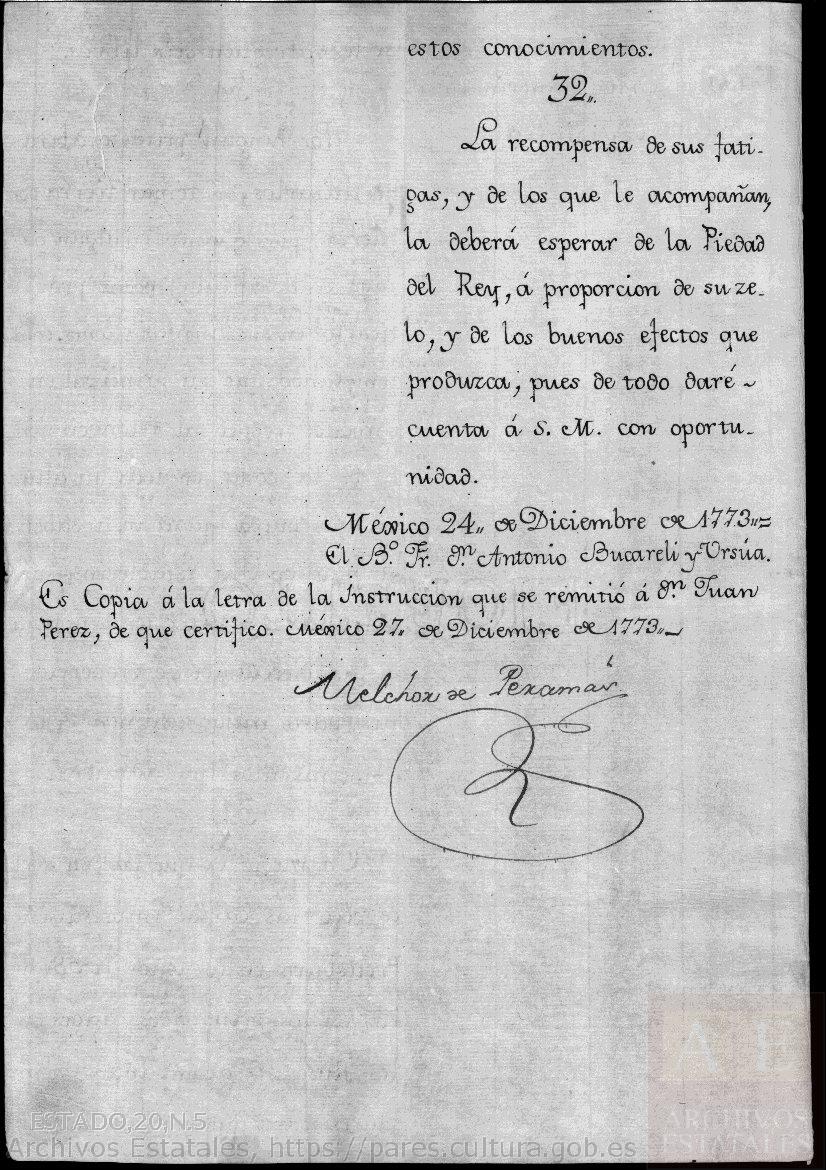 estos conocimientos.
32„
La recompensa de sus fati-
gas, y de los que le acompañan,
la deberá esperar de la Piedad
del Rey, á proporcion de su ze-
lo, y de los buenos efectos que
produzca, pues de todo daré ~
cuenta á S. M. con oportu-
nidad.
México 24„ de Diciembre de 1773„=
El B.º Fr. D.n Antonio Bucareli y Ursúa.
Es Copia á la letra de la Instruccion que se remitió á D.n Juan
Perez, de que certifico. México 27„ de Diciembre de 1773„
Melchor de Peramás
ESTADO,20,N.5
Archivos Estatales, https://pares.cultura.gob.es
A E
ARCHIVOS
ESTATALES